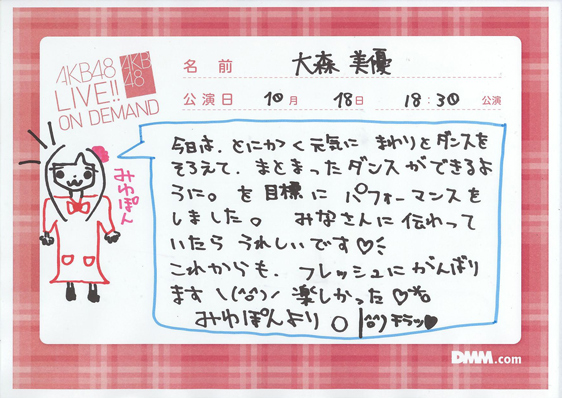 AKB48
LIVE!!
ON DEMAND
AKB
48
名前 大森 美優
公演日 10月 18日 18:30 公演
今日は、とにかく元気に まわりとダンスを
そろえて、まとまったダンスができるよ
うに。を目標に パフォーマンスを
しました。 みなさんに伝わって
いたら うれしいです♡
これからも、フレッシュにがんばり
ます \(^o^)/ 楽しかった♡
みゆぽんより ○ |^o^)チラッ♥
みゆぽん
DMM.com